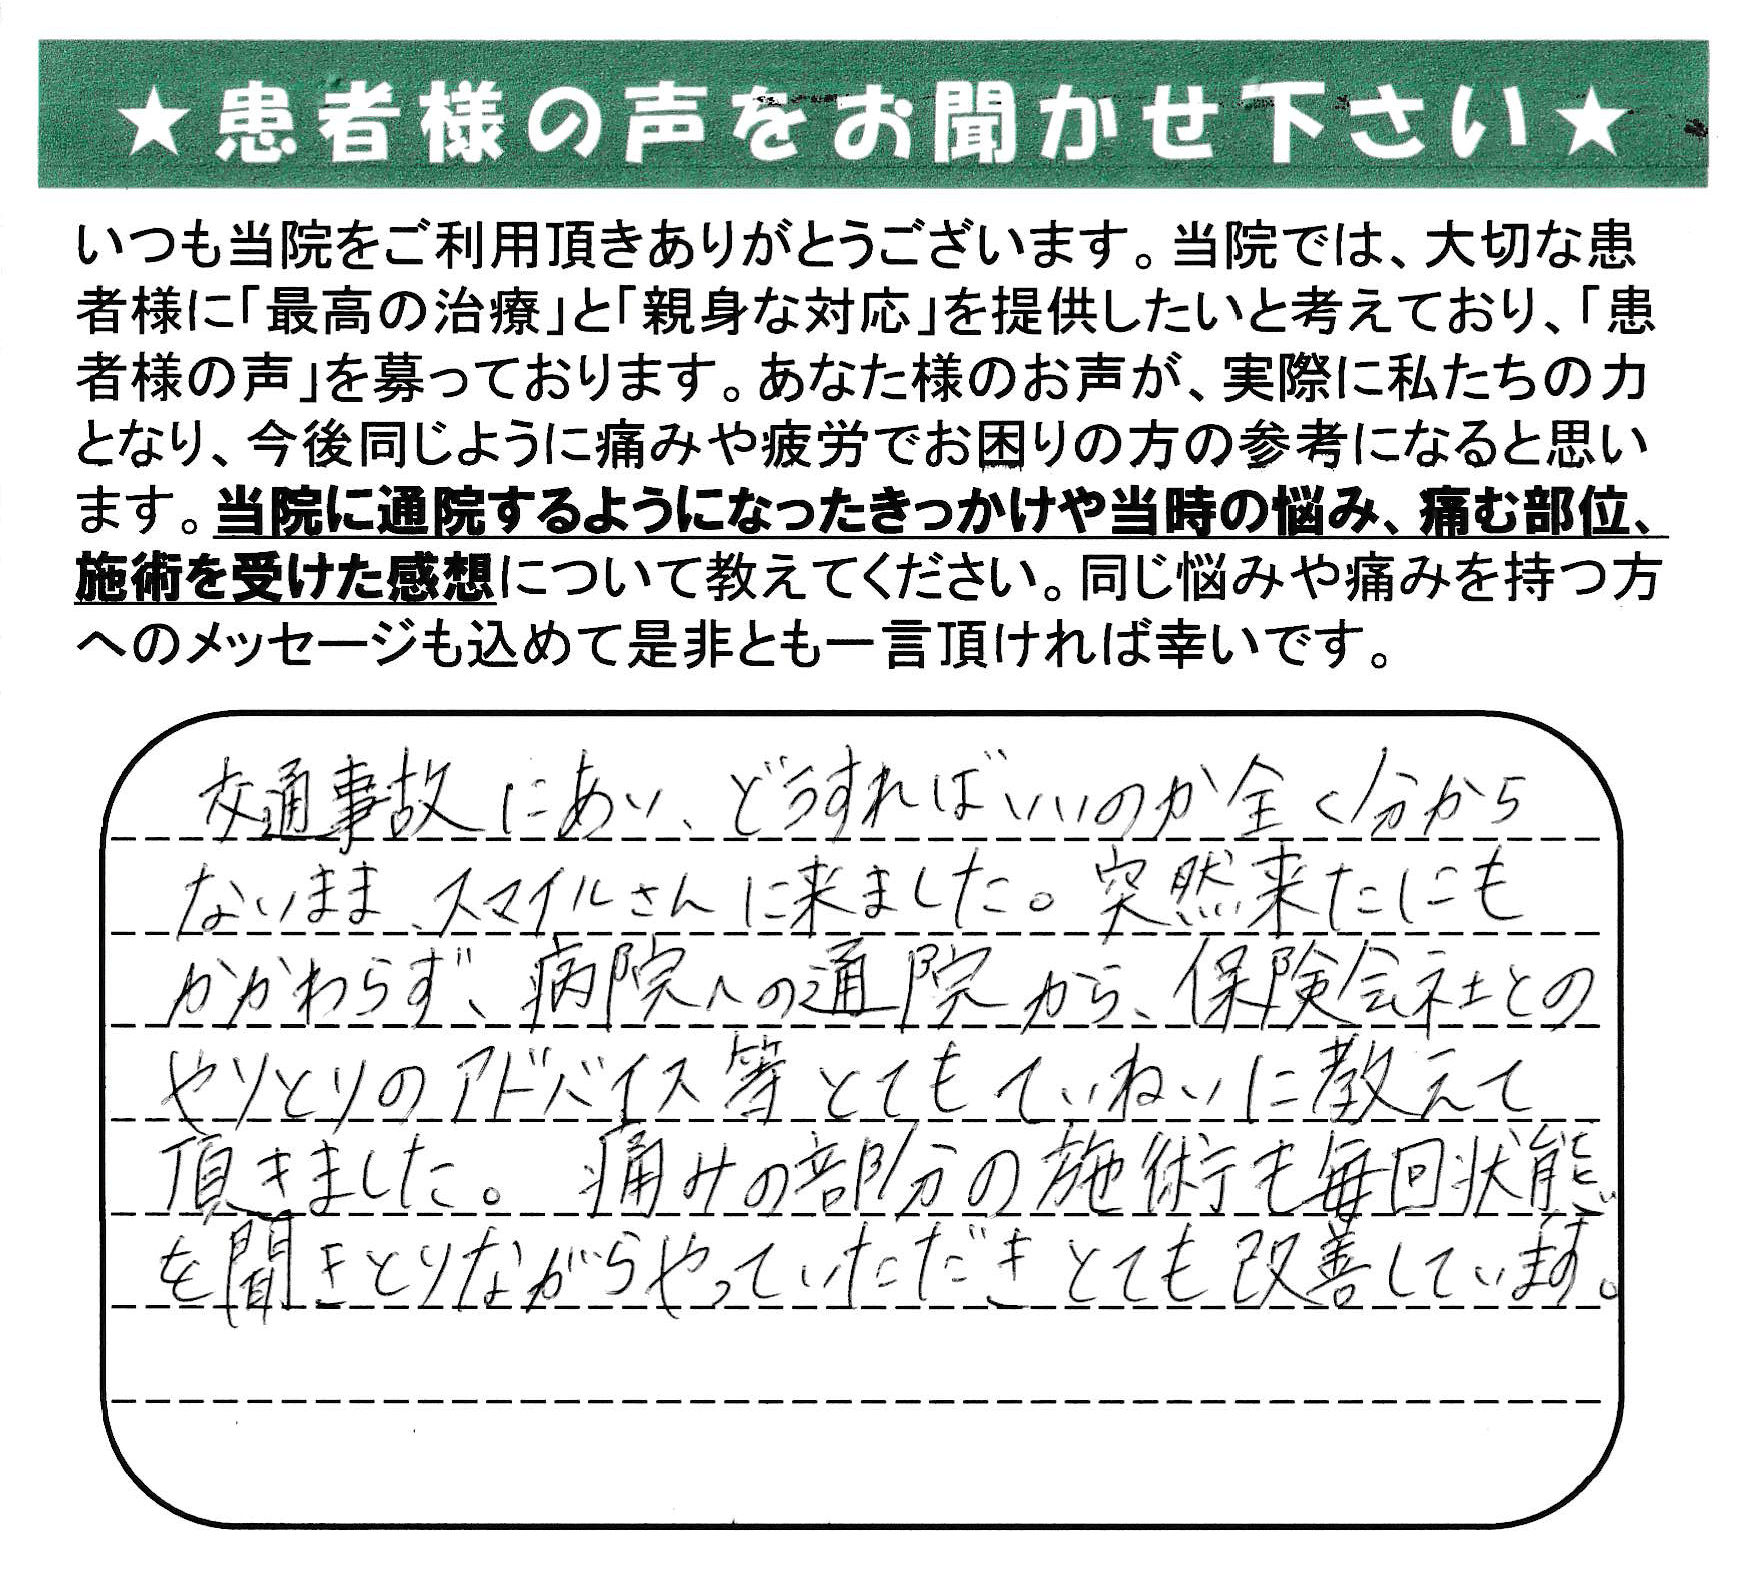 ★患者様の声をお聞かせ下さい★
いつも当院をご利用頂きありがとうございます。当院では、大切な患
者様に「最高の治療」と「親身な対応」を提供したいと考えており、「患
者様の声」を募っております。あなた様のお声が、実際に私たちの力
となり、今後同じように痛みや疲労でお困りの方の参考になると思い
ます。当院に通院するようになったきっかけや当時の悩み、痛む部位、
施術を受けた感想について教えてください。同じ悩みや痛みを持つ方
へのメッセージも込めて是非とも一言頂ければ幸いです。
交通事故にあい、どうすればいいのか全く分から
ないまま、スマイルさんに来ました。突然来たにも
かかわらず、病院への通院から、保険会社との
やりとりのアドバイス等とてもていねいに教えて
頂きました。痛みの部分の施術も毎回状態
を聞きとりながらやっていただきとても改善しています。